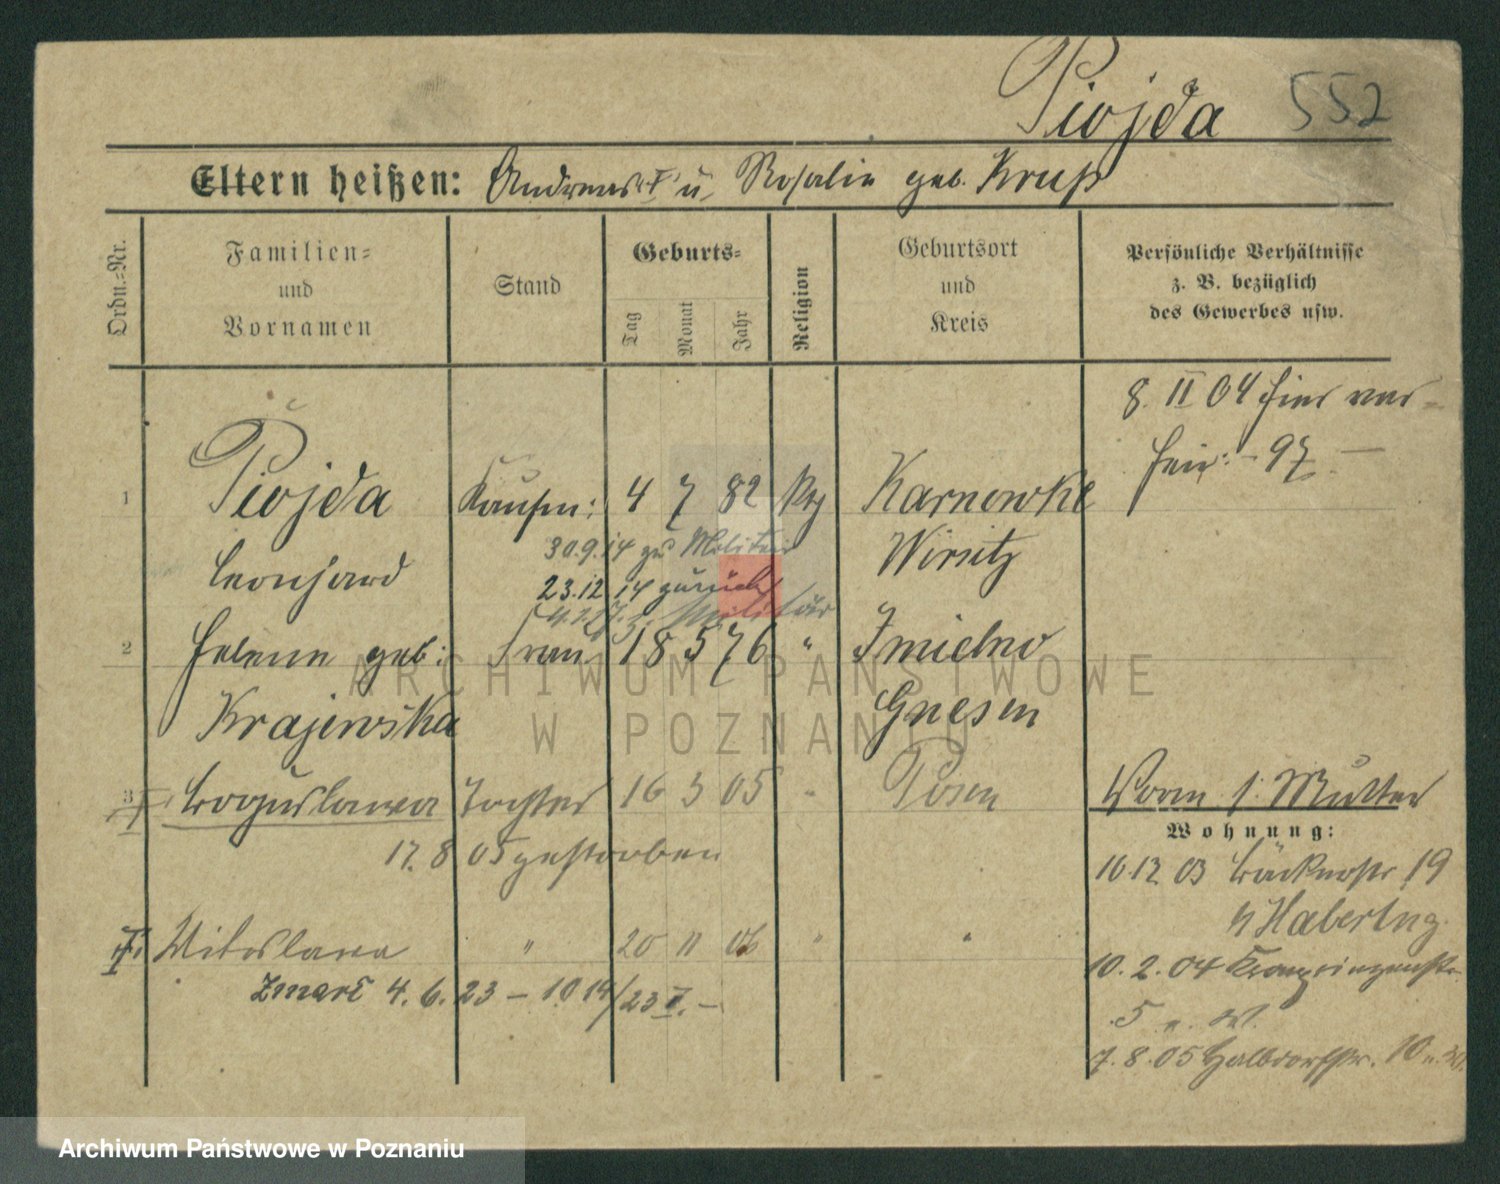 Piojda 552
Eltern heißen: Andreas "†" u. Rosalie geb. Krupp
Ordn.-Nr.
Familien- und Vornamen
Stand
Geburts-
Tag Monat Jahr
Religion
Geburtsort und Kreis
Persönliche Verhältnisse
z. B. bezüglich
des Gewerbes usw.
8. II 04 hier ver-
heir: - 97. -
1 Piojda Kaufm: 4 7 82 Karnowke
30.9.14 zu Militär
Leonhard Wirsitz
23.12 14 zurück
Militär
2 Helene geb: Frau 18 5 76 " Imielno
Krajewska Gnesen
3 Boguslawa Tochter 16 3 05 " Posen
17. 8 05 gestorben
Worm s. Mutter
Wohnung:
16 12 03 Bäckerstr 19
b/ Haberlng.
Witoslawa " 20 11 06 " "
Zmarł 4. 6. 23 - 1014/23 -
10. 2. 04 Kronprinzenstr.
5
7. 8. 05 Halbdorfstr. 10
ARCHIWUM PAŃSTWOWE
W POZNANIU
Archiwum Państwowe w Poznaniu